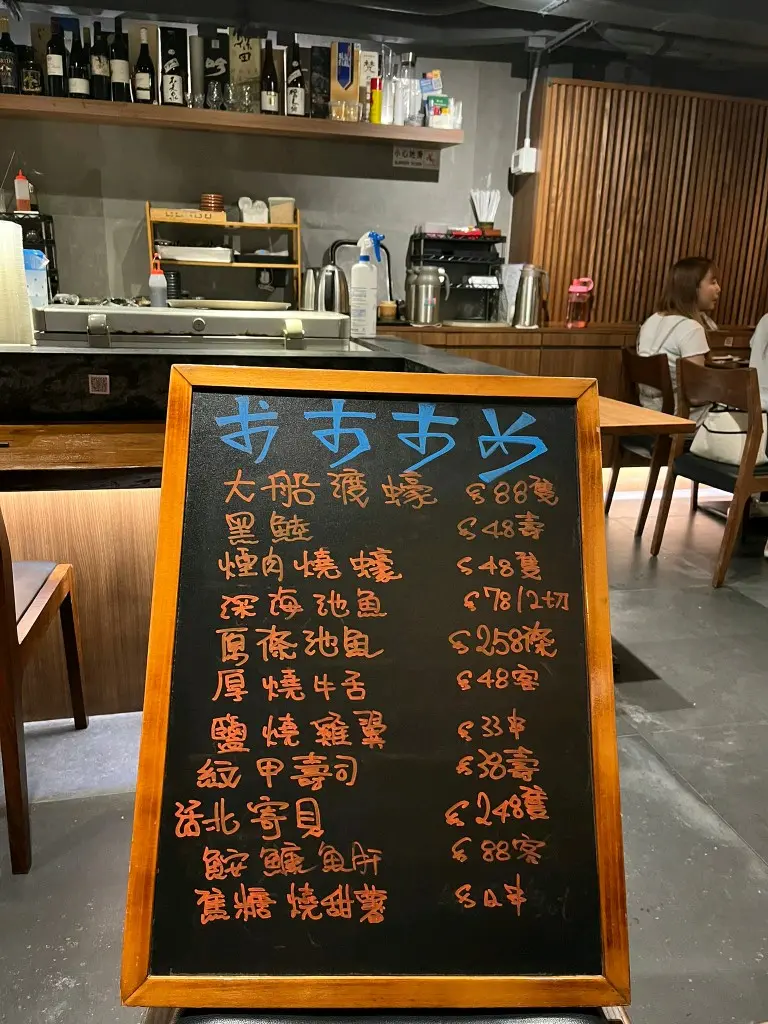 小心地滑
おすすめ
大船渡蠔 $88隻
黑鯥 $48壽
煙肉燒蠔 $48隻
深海池魚 $78/2切
原條池魚 $258條
厚燒牛舌 $48客
鹽燒雞翼 $33串
紋甲壽司 $38壽
活北寄貝 $248隻
鮟鱇魚肝 $88客
蕉糖燒甜薯